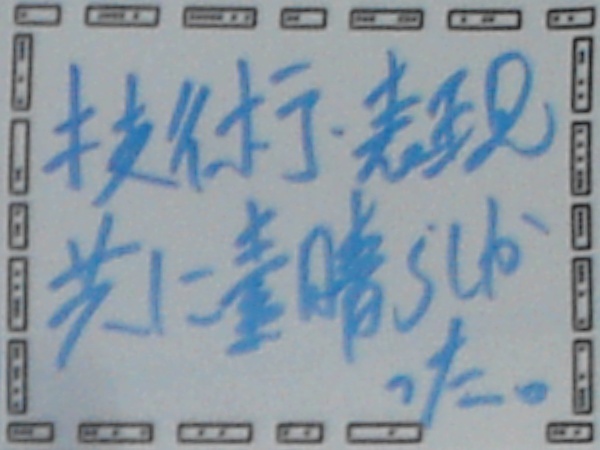 技術・表現
共に素晴らしか
った。